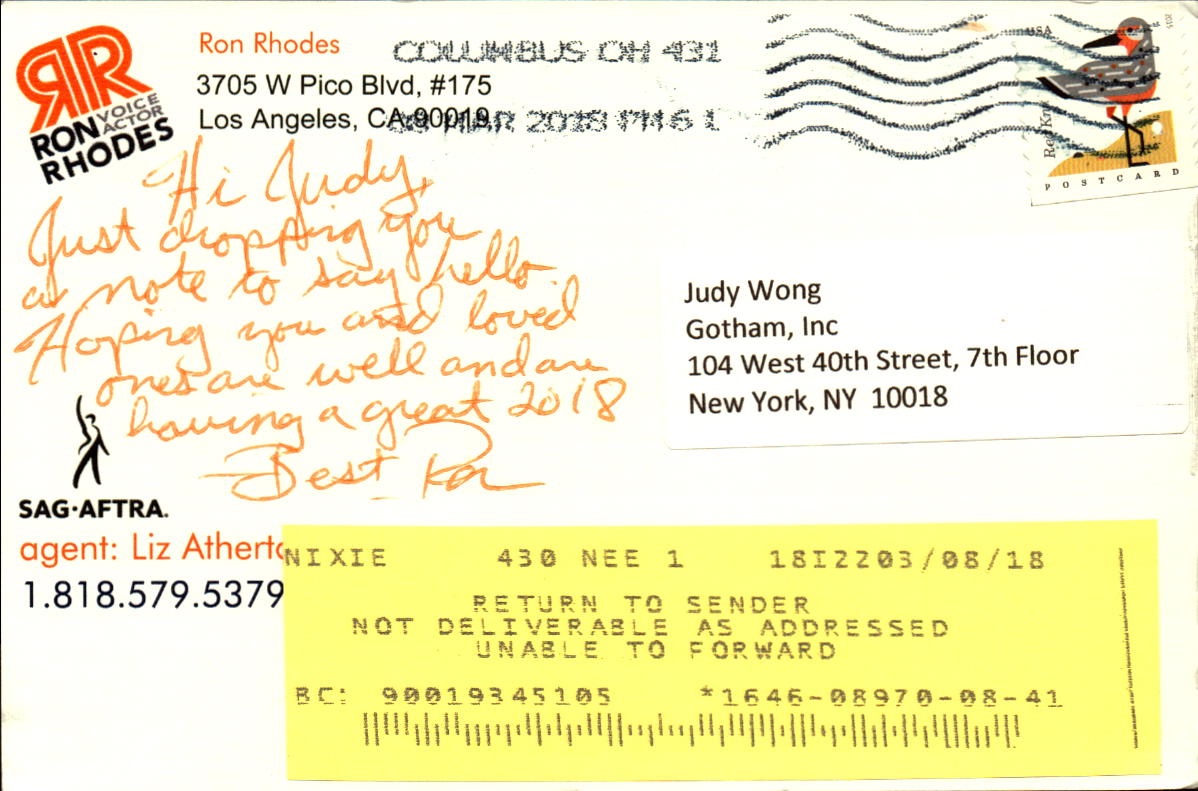 RR
RON VOICE ACTOR
RHODES
Ron Rhodes
3705 W Pico Blvd, #175
Los Angeles, CA 90019
COLUMBUS OH 431
MAR 2018 PM 6 L
USA
2015
Red Kn
POSTCARD
Hi Judy,
Just dropping you
a note to say hello.
Hoping you and loved
ones are well and are
having a great 2018
Best Ron
Judy Wong
Gotham, Inc
104 West 40th Street, 7th Floor
New York, NY 10018
SAG·AFTRA.
agent: Liz Atherto
1.818.579.5379
NIXIE 430 NEE 1 18I2203/08/18
RETURN TO SENDER
NOT DELIVERABLE AS ADDRESSED
UNABLE TO FORWARD
BC: 90019345105 *1646-08970-08-41